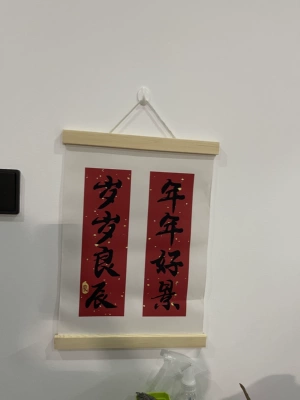 年年好景
岁岁良辰